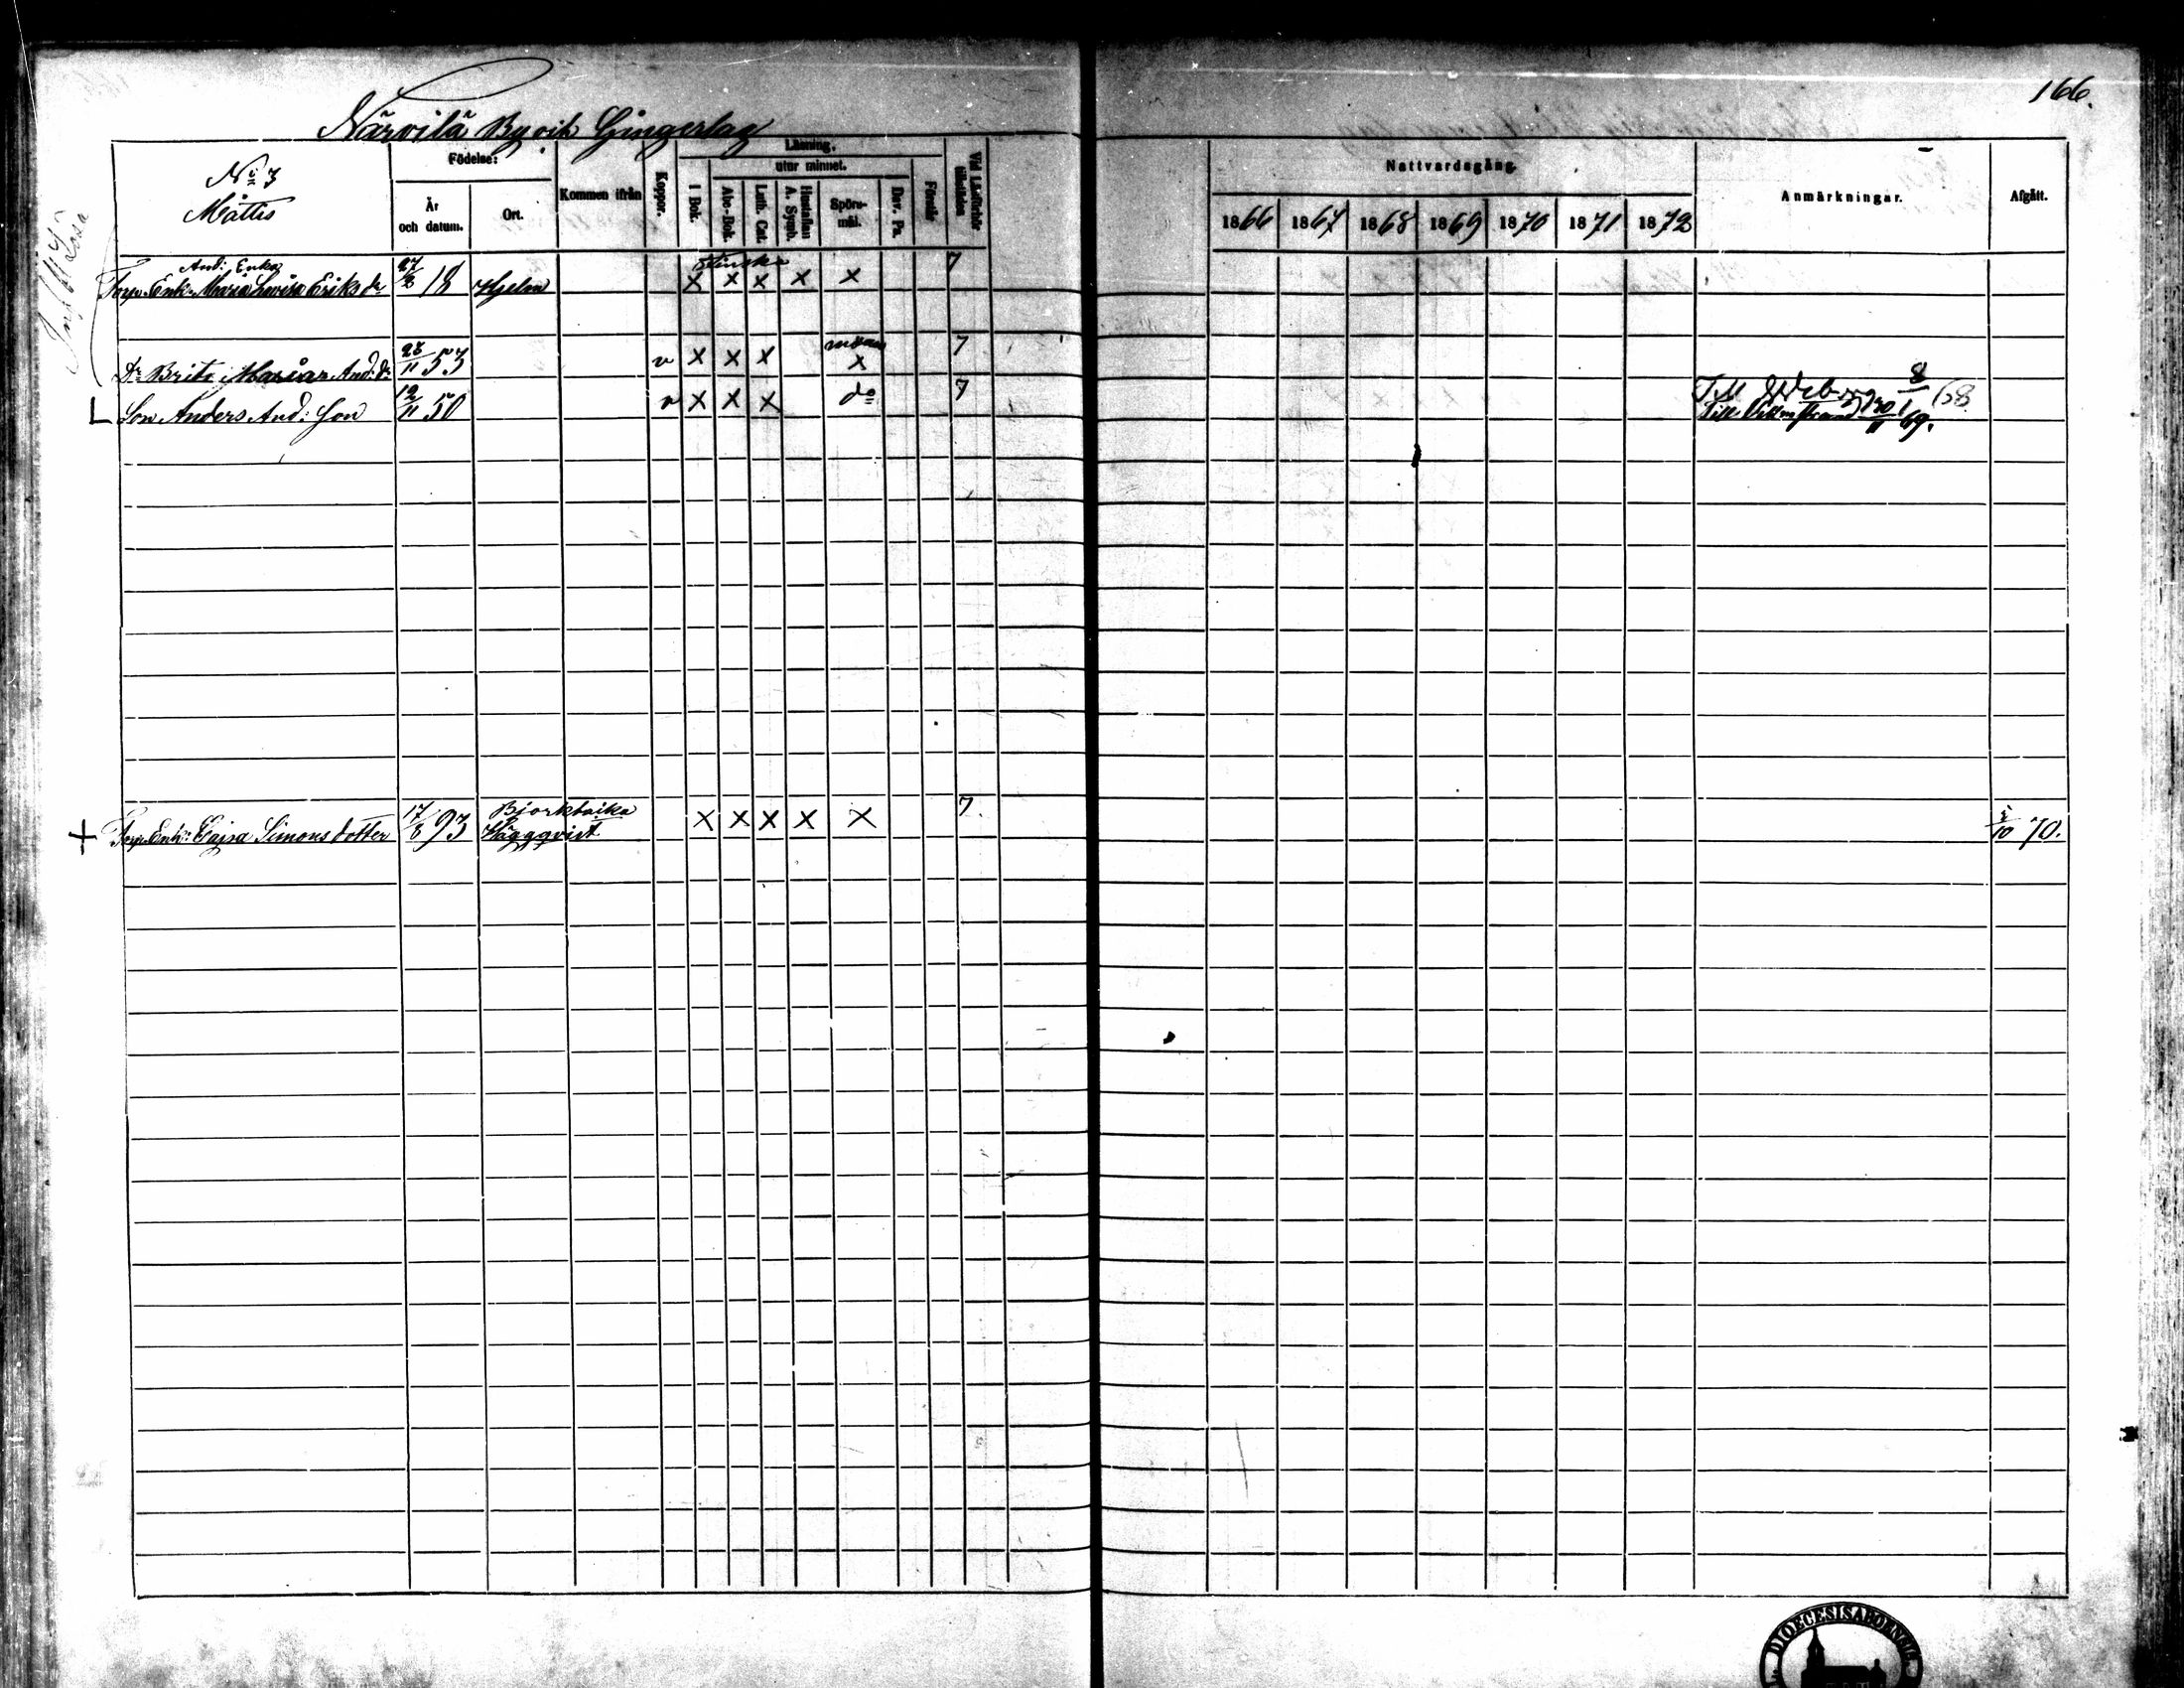 166.
Närvilä By och Gingerlag
No 3
Måttis
Födelse:
År och datum.
Ort.
Kommen ifrån
Koppor.
Läsning.
I Bok.
utur minnet.
Abc-Bok.
Luth. Cat.
Hustaflan A. Symb.
Spörs-mål.
Dav. Ps.
Förstår
Vid Läseförhör
Nattvardsgång.
1866 1867 1868 1869 1870 1871 1872
Anmärkningar.
Afgått.
And: Enka
Torp. Enk. Maria Lovisa Eriks dr 27/2 18 Hjelm x x x x x 7
Dr Brita Maria And: dr 28/11 53 v x x x x 7
Till 8/1 68
L Son Anders And: Son 12/11 50 v x x x do 7 Till 30/11 69.
Björkbacka
+ Torp. Enk. Cajsa Simons dotter 17/8 93 Häggqvist x x x x x 7. /10 70.
DIOECESIS ABOENSIS